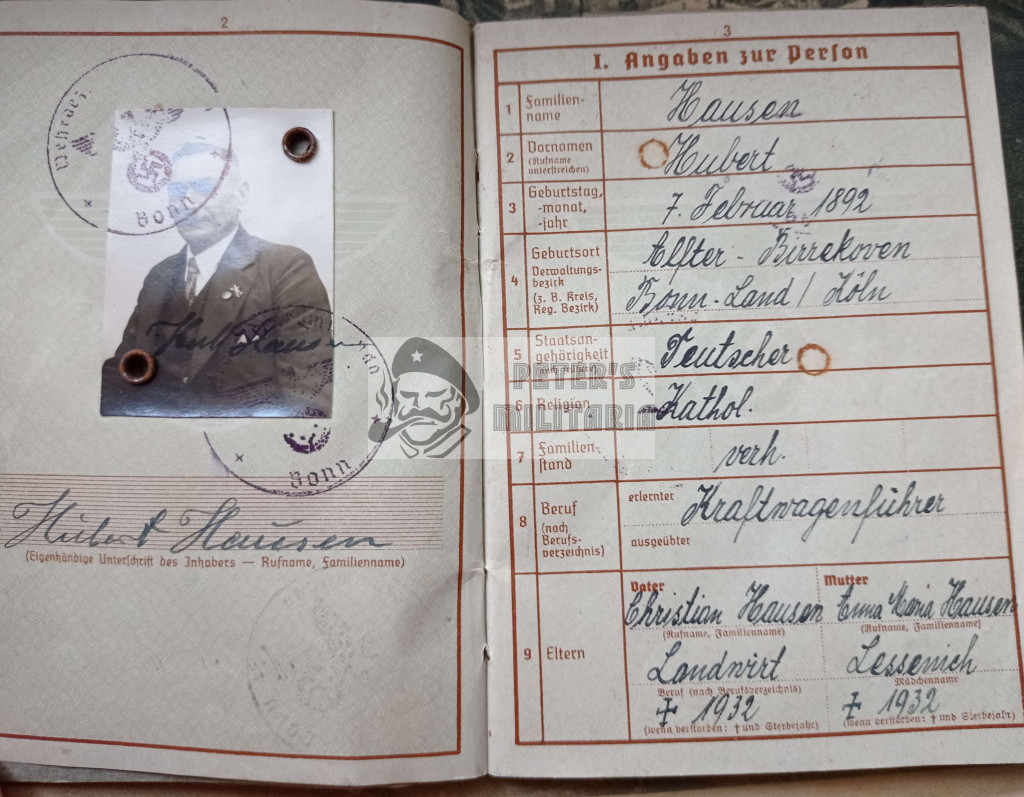 2
Wehrbez.
Bonn
Hub. Hausen
Bonn
Hubert Hausen
(Eigenhändige Unterschrift des Inhabers — Rufname, Familienname)
3
I. Angaben zur Person
1 Familien-
name
Hausen
2 Vornamen
(Rufname
unterstreichen)
Hubert
3 Geburtstag,
-monat,
-jahr
7. Februar 1892
4 Geburtsort
Verwaltungs-
bezirk
(z. B. Kreis,
Reg. Bezirk)
Alfter - Birrekoven
Bonn-Land / Köln
5 Staatsan-
gehörigkeit
Deutscher
6 Religion
Kathol.
7 Familien-
stand
verh.
8 Beruf
(nach
Berufs-
verzeichnis)
erlernter
Kraftwagenführer
ausgeübter
9 Eltern
Vater
Christian Hausen
(Rufname, Familienname)
Landwirt
Beruf (nach Berufsverzeichnis)
† 1932
(wenn verstorben: † und Sterbejahr)
Mutter
Anna Maria Hausen
(Rufname, Familienname)
Lessenich
Mädchenname
† 1932
(wenn verstorben: † und Sterbejahr)
PETER'S
MILITARIA